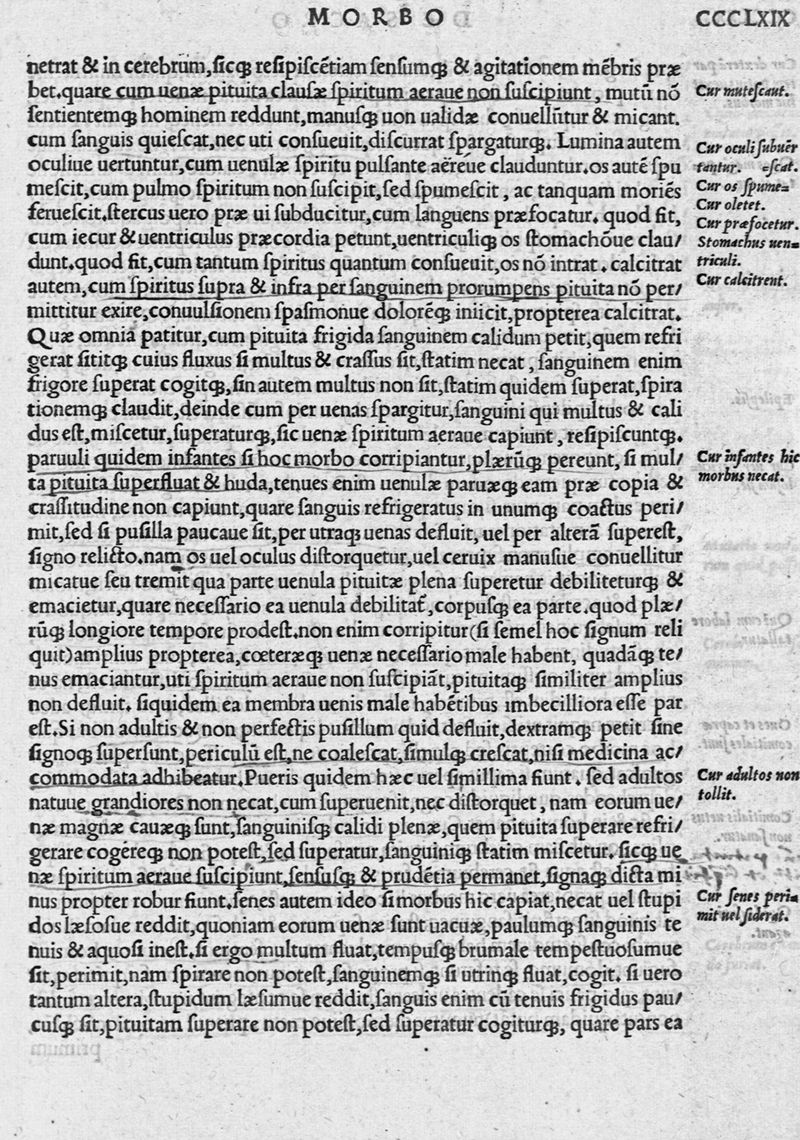 MORBO
CCCLXIX
netrat & in cerebrum,sicq; resipiscētiam sensumq; & agitationem mēbris præ
bet.quare cum uenæ pituita clausæ spiritum aeraue non suscipiunt, mutū nō
Cur mutescant.
sentientemq; hominem reddunt,manusq; uon ualidæ conuellūtur & micant.
cum sanguis quiescat,nec uti consueuit,discurrat spargaturq;. Lumina autem
Cur oculi subuēr
oculiue uertuntur,cum uenulæ spiritu pulsante aëreue clauduntur.os autē spu
tantur. -escat.
mescit,cum pulmo spiritum non suscipit,sed spumescit, ac tanquam moriēs
Cur os spume=
Cur oletet.
feruescit.stercus uero præ ui subducitur,cum languens præfocatur. quod fit,
Cur præfocetur.
cum iecur & uentriculus præcordia petunt,uentriculiq; os stomachōue clau/
Stomachus uen=
dunt.quod fit,cum tantum spiritus quantum consueuit,os nō intrat. calcitrat
triculi.
autem,cum spiritus supra & infra per sanguinem prorumpens pituita nō per/
Cur calcitrent.
mittitur exire,conuulsionem spasmonue dolorēq; iniicit,propterea calcitrat.
Quæ omnia patitur,cum pituita frigida sanguinem calidum petit,quem refri
gerat sititq; cuius fluxus si multus & crassus sit,statim necat, sanguinem enim
frigore superat cogitq;,sin autem multus non sit,statim quidem superat,spira
tionemq; claudit,deinde cum per uenas spargitur,sanguini qui multus & cali
dus est,miscetur,superaturq;,sic uenæ spiritum aeraue capiunt, resipiscuntq;.
paruuli quidem infantes si hoc morbo corripiantur,plærūq; pereunt, si mul/
Cur infantes hic
ta pituita superfluat & huda,tenues enim uenulæ paruæq; eam præ copia &
morbus necat.
crassitudine non capiunt,quare sanguis refrigeratus in unumq; coactus peri/
mit,sed si pusilla paucaue sit,per utraq; uenas defluit, uel per alterā superest,
signo relicto.nam os uel oculus distorquetur,uel ceruix manusue conuellitur
micatue seu tremit qua parte uenula pituitæ plena superetur debiliteturq; &
emacietur,quare necessario ea uenula debilitat̄,corpusq; ea parte.quod plæ/
rūq; longiore tempore prodest.non enim corripitur(si semel hoc signum reli
quit)amplius propterea,cœteræq; uenæ necessario male habent, quadāq; te/
nus emaciantur,uti spiritum aeraue non suscipiāt,pituitaq; similiter amplius
non defluit. siquidem ea membra uenis male habētibus imbecilliora esse par
est.Si non adultis & non perfectis pusillum quid defluit,dextramq; petit sine
signoq; supersunt,periculū est,ne coalescat,simulq; crescat,nisi medicina ac/
commodata adhibeatur.Pueris quidem hæc uel simillima fiunt. sed adultos
Cur adultos non
natuue grandiores non necat,cum superuenit,nec distorquet, nam eorum ue/
tollit.
næ magnæ cauæq; sunt,sanguinisq; calidi plenæ,quem pituita superare refri/
gerare cogereq; non potest,sed superatur,sanguiniq; statim miscetur. sicq; ue
næ spiritum aeraue suscipiunt,sensusq; & prudētia permanet,signaq; dicta mi
nus propter robur fiunt.senes autem ideo si morbus hic capiat,necat uel stupi
Cur senes peri=
dos læsosue reddit,quoniam eorum uenæ sunt uacuæ, paulumq; sanguinis te
mit uel siderat.
nuis & aquosi inest.si ergo multum fluat,tempusq; brumale tempestuosumue
sit,perimit,nam spirare non potest,sanguinemq; si utrinq; fluat,cogit. si uero
tantum altera,stupidum læsumue reddit,sanguis enim cū tenuis frigidus pau/
cusq; sit,pituitam superare non potest,sed superatur cogiturq;, quare pars ea